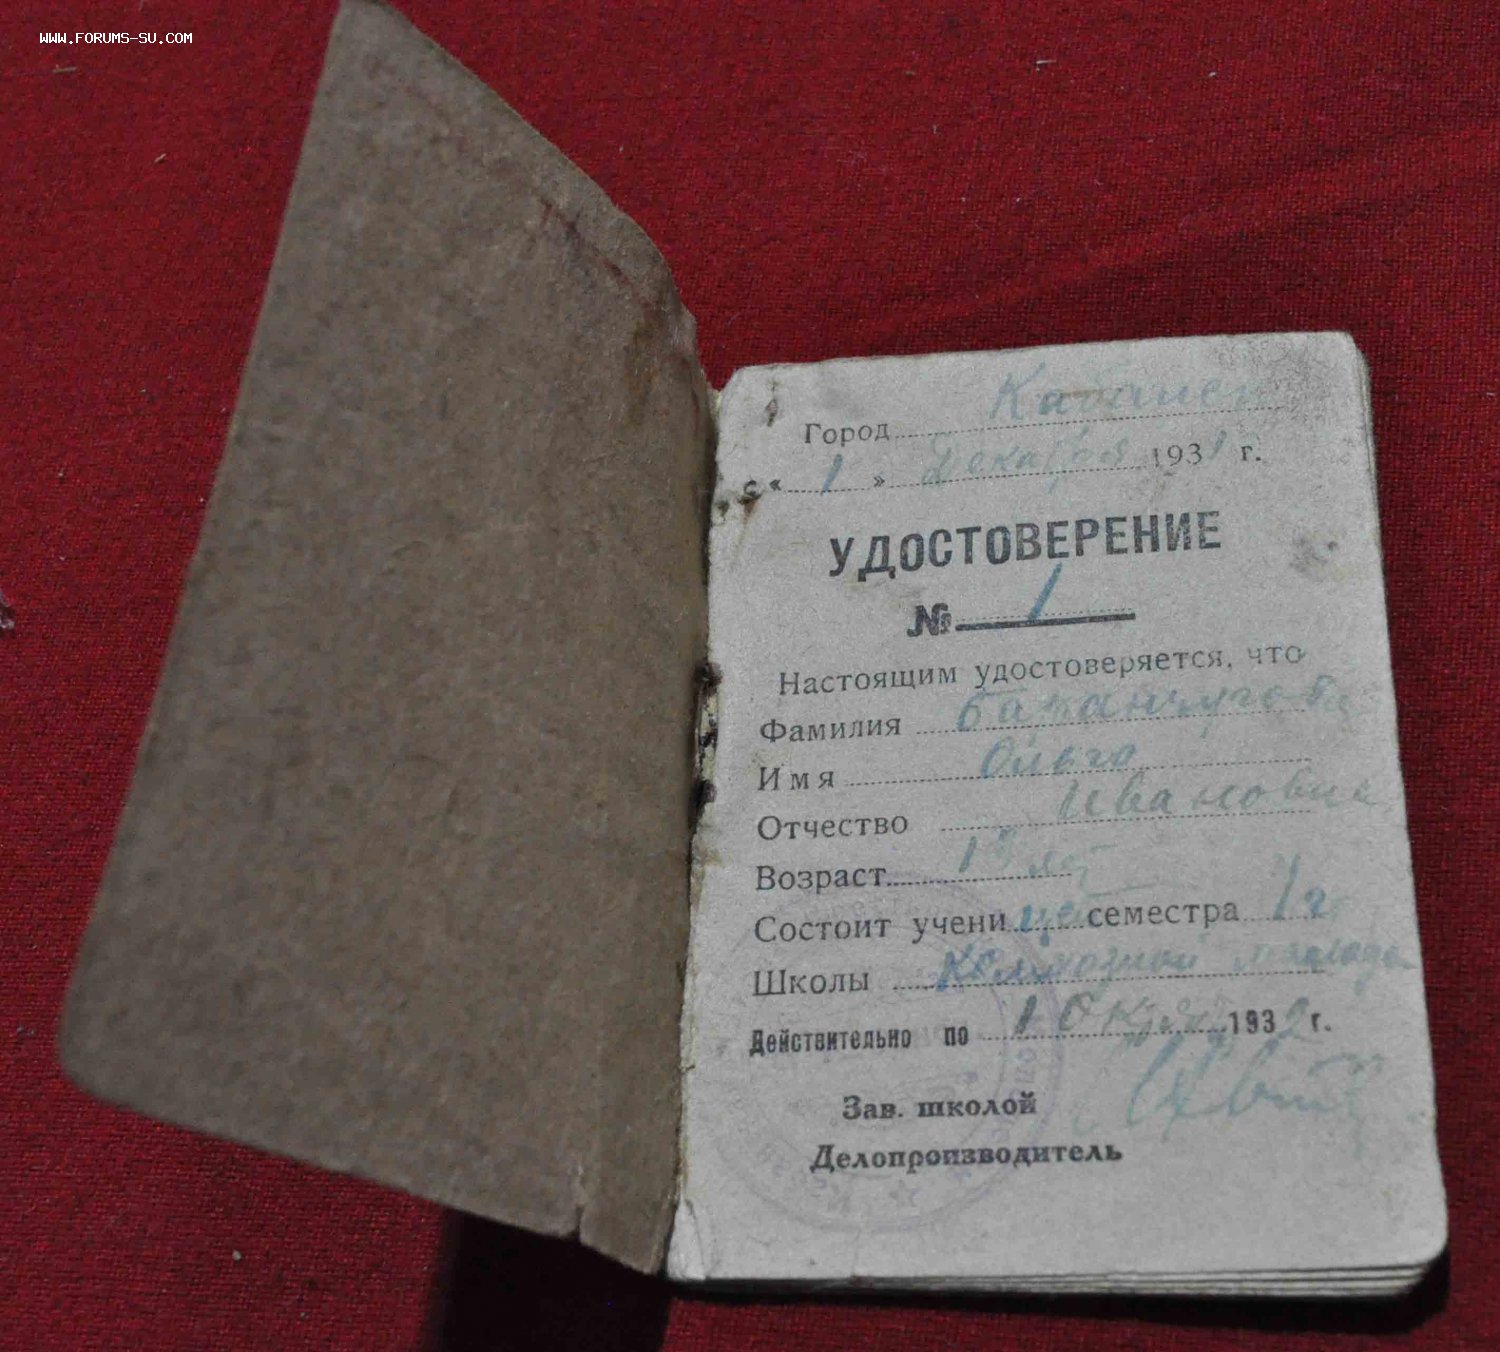 WWW.FORUMS-SU.COM
Город
с « 1 » Декабря 1931 г.
УДОСТОВЕРЕНИЕ
№ 1
Настоящим удостоверяется, что
Фамилия
Имя Ольга
Отчество Ивановна
Возраст лет
Состоит учени цей семестра 1 г
Школы Колхозной
Действительно по 1 Октяб 1932 г.
Зав. школой
Делопроизводитель